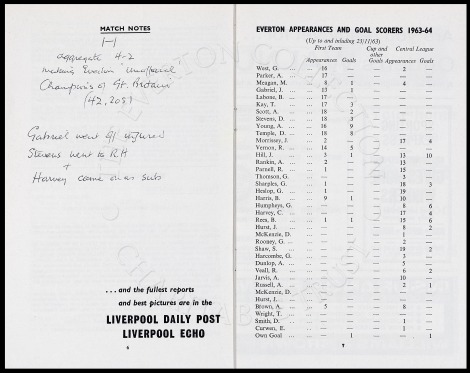 MATCH NOTES
1-1
aggregate 4-2
making Everton unofficial
Champions of Gt. Britain
(42,202)
Gabriel went off injured
Stevens went to RH
+
Harvey came on as sub
... and the fullest reports
and best pictures are in the
LIVERPOOL DAILY POST
LIVERPOOL ECHO
6
EVERTON APPEARANCES AND GOAL SCORERS 1963-64
(Up to and including 23/11/63)
First Team Cup and other Central League
Appearances Goals Goals Appearances Goals
West, G. ... 16 — — 2 —
Parker, A. ... 17 — — — —
Meagan, M. ... 8 1 — 4 —
Gabriel, J. ... 13 1 — — —
Labone, B. ... 17 — — — —
Kay, T. ... 17 3 — — —
Scott, A. ... 18 2 — — —
Stevens, D. ... 18 3 — — —
Young, A. ... 16 9 — — —
Temple, D. ... 18 8 — — —
Morrissey, J. ... 2 — — 17 4
Vernon, R. ... 14 5 — — —
Hill, J. ... 3 1 — 13 10
Rankin, A. ... 2 — — 13 —
Parnell, R. ... 1 — — 15 —
Thomson, G. ... — — — 3 —
Sharples, G. ... 1 — — 18 3
Heslop, G. ... 1 — — 19 —
Harris, B. ... 9 1 — 10 —
Humphreys, G. ... — — — 8 6
Harvey, C. ... — — — 17 4
Rees, B. ... 1 1 — 15 6
Hurst, J. ... — — — 8 2
McKenzie, D. ... — — — 1 —
Rooney, G. ... — — — 2 —
Shaw, S. ... — — — 19 2
Harcombe, G. ... — — — 3 —
Dunlop, A. ... — — — 5 —
Veall, R. ... — — — 6 2
Jarvis, A. ... — — — 10 —
Russell, A. ... — — — 2 1
McKenzie, D. ... — — — — —
Hurst, J. ... — — — — —
Brown, A. ... 5 — — 8 —
Wright, T. ... — — — — —
Smith, D. ... — — — 1 —
Curwen, E. ... — — — 1 —
Own Goal ... — 1 — — 1
7